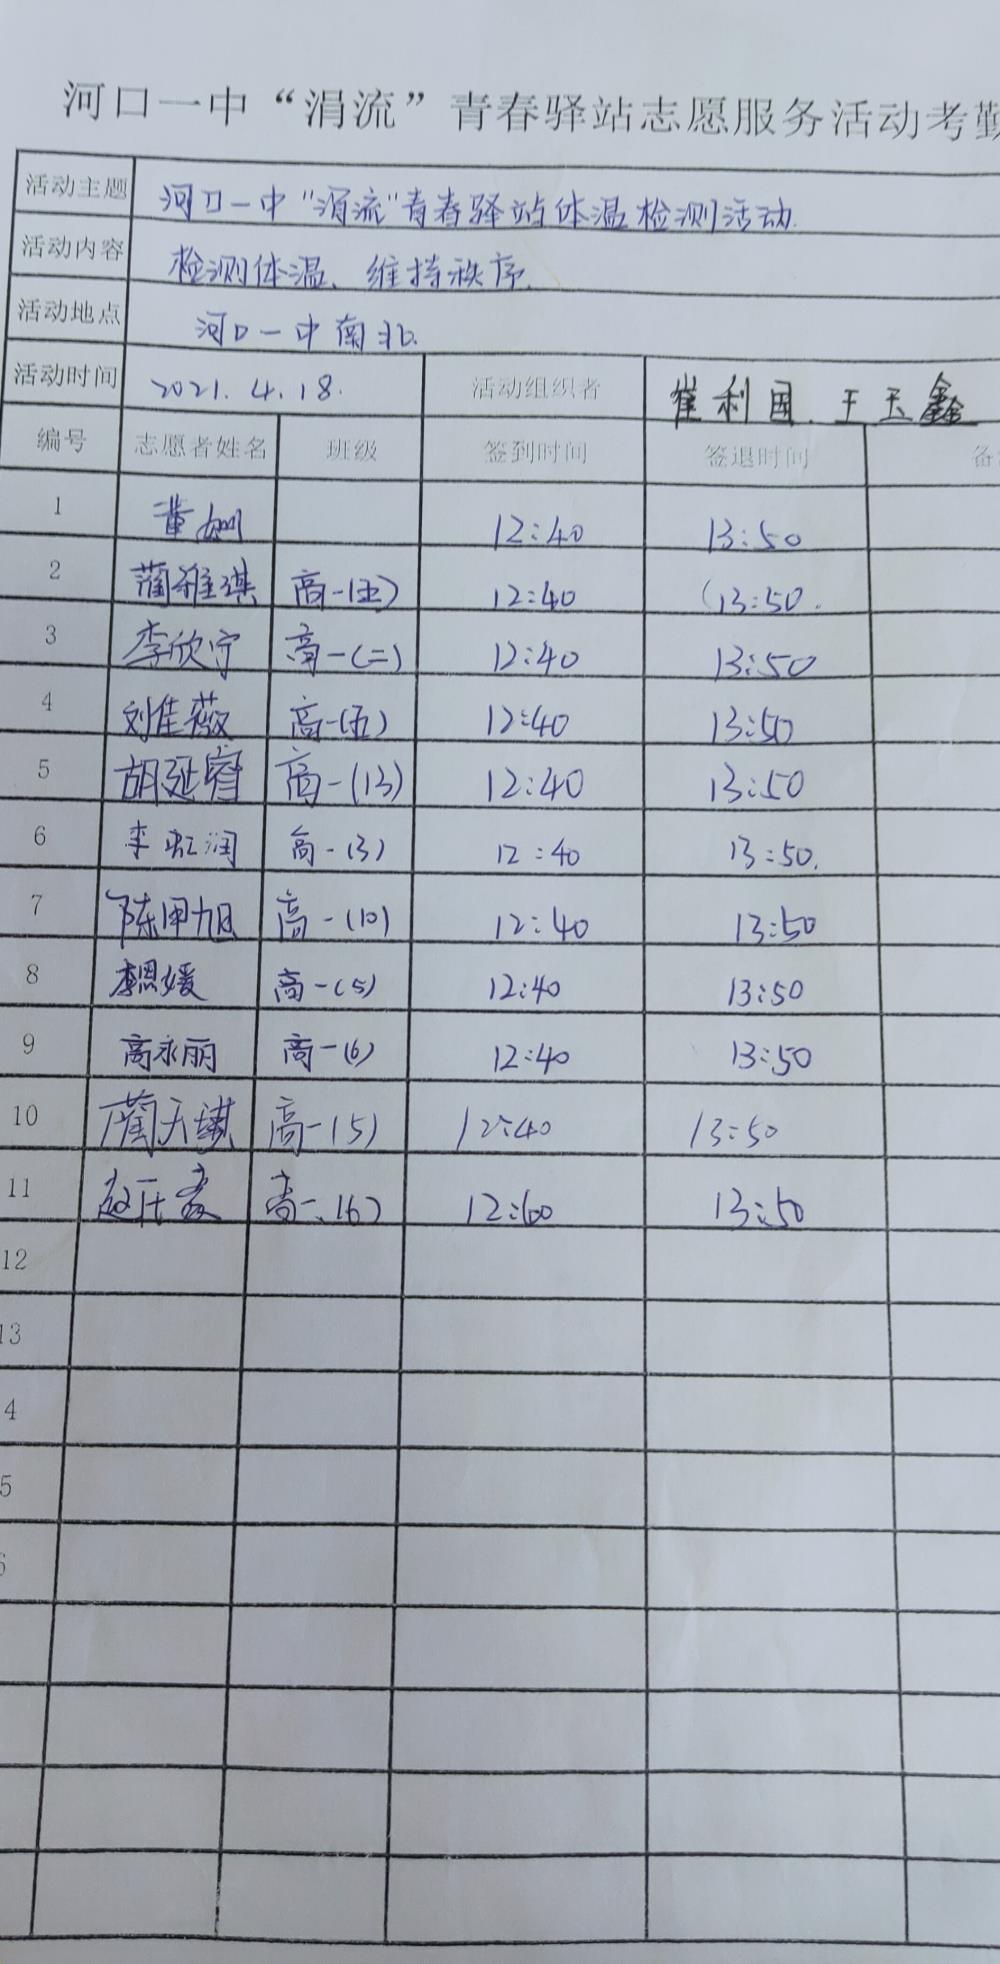 河口一中“涓流”青春驿站志愿服务活动考勤
活动主题 河口一中"涓流"青春驿站体温检测活动.
活动内容 检测体温、维持秩序.
活动地点 河口一中南北.
活动时间 2021.4.18. 活动组织者 崔利国.王玉鑫
编号 志愿者姓名 班级 签到时间 签退时间 备
1 董 12:40 13:50
2 蔺雅琪 高一(五) 12:40 (13:50.
3 李欣宁 高一(二) 12:40 13:50
4 刘佳薇 高一(五) 12:40 13:50
5 胡延睿 高一(13) 12:40 13:50
6 李虹润 高一(3) 12:40 13:50.
7 陈甲旭 高一(10) 12:40 13:50
8 李恩媛 高一(5) 12:40 13:50
9 高永丽 高一(6) 12:40 13:50
10 蔺天琪 高一(5) 12:40 13:50
11 赵 高一.(6) 12:60 13:50
12
13
4
5